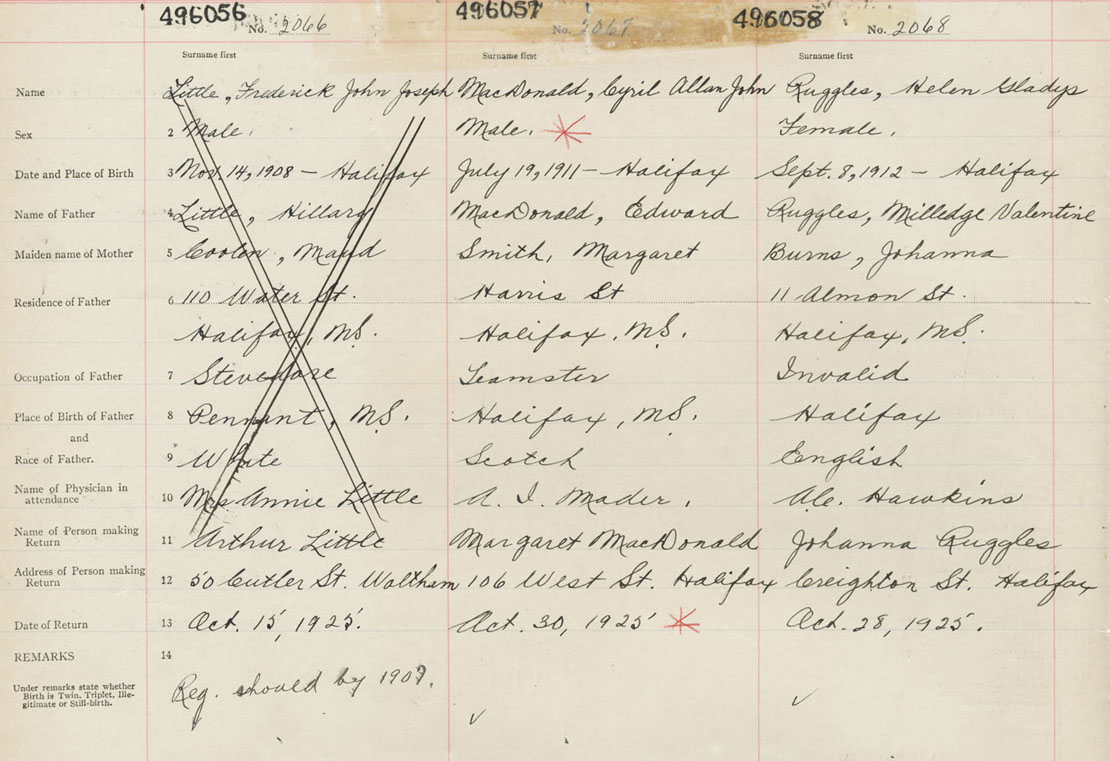 496056 496057 496058
No. 2066 No. 2067 No. 2068
Surname first Surname first Surname first
Name 1 Little, Frederick John Joseph MacDonald, Cyril Allan John Ruggles, Helen Gladys
Sex 2 Male. Male. Female.
Date and Place of Birth 3 Nov. 14, 1908 – Halifax July 19, 1911 – Halifax Sept. 8, 1912 – Halifax
Name of Father 4 Little, Hillary MacDonald, Edward Ruggles, Milledge Valentine
Maiden name of Mother 5 Coolen, Maud Smith, Margaret Burns, Johanna
Residence of Father 6 110 Water St. Harris St 11 Almon St.
Halifax, N.S. Halifax, N.S. Halifax, N.S.
Occupation of Father 7 Stevedore Teamster Invalid
Place of Birth of Father 8 Pennant, N.S. Halifax, N.S. Halifax
and
Race of Father. 9 White Scotch English
Name of Physician in attendance 10 Mrs Annie Little A. I. Mader. A.C. Hawkins
Name of Person making Return 11 Arthur Little Margaret MacDonald Johanna Ruggles
Address of Person making Return 12 50 Cutler St. Waltham 106 West St. Halifax Creighton St. Halifax
Date of Return 13 Oct. 15, 1925. Oct. 30, 1925 Oct. 28, 1925.
REMARKS 14
Under remarks state whether
Birth is Twin, Triplet, Ille-
gitimate or Still-birth.
Reg. should by 1907.